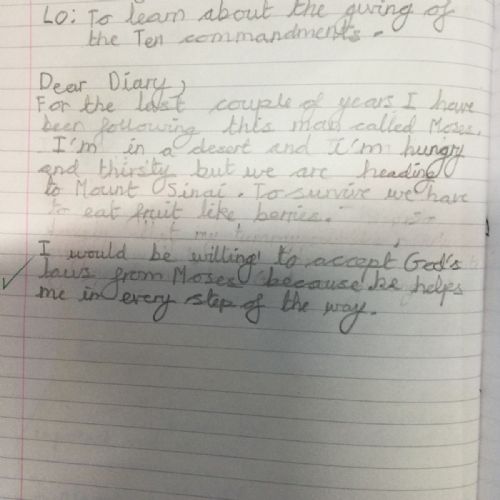 LO: To learn about the giving of
the Ten commandments.
Dear Diary,
For the last couple of years I have
been following this man called Moses.
I'm in a desert and I'm hungry
and thirsty but we are heading
to Mount Sinai. To survive we have
to eat fruit like berries.
I would be willing to accept God's
laws from Moses because he helps
me in every step of the way.